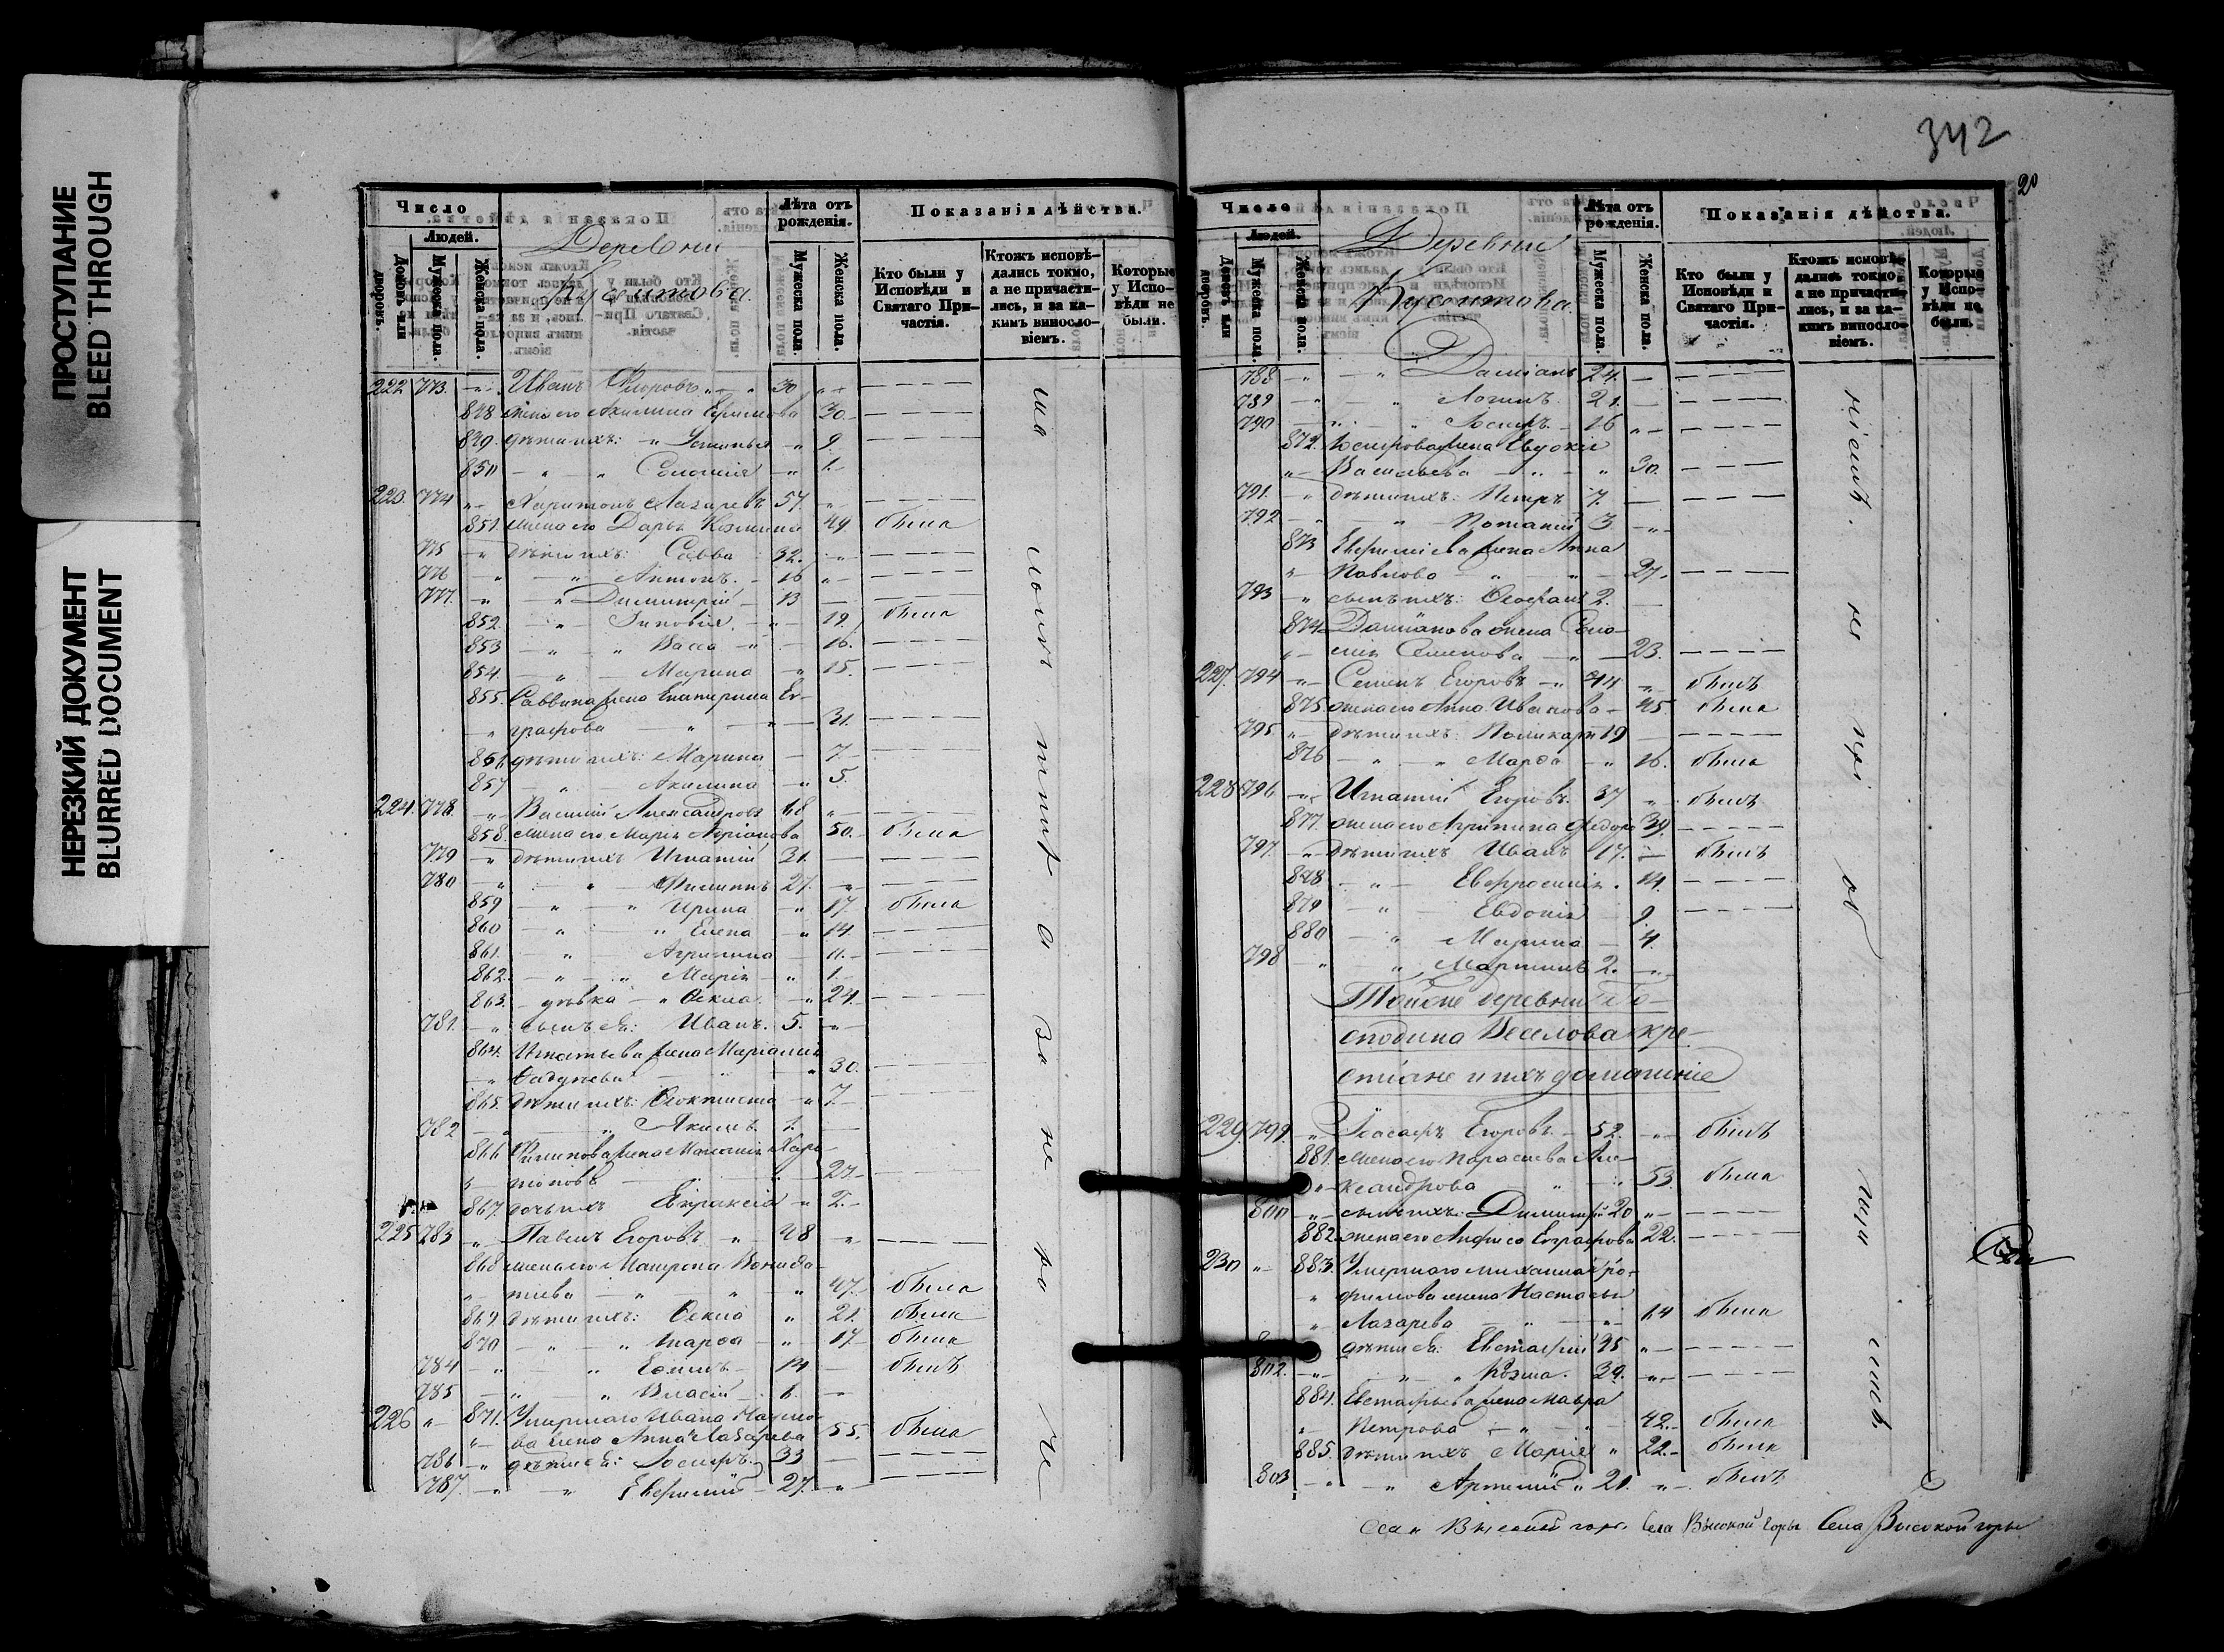 ПРОСТУПАНИЕ
BLEED THROUGH
НЕРЕЗКИЙ ДОКУМЕНТ
BLURRED DOCUMENT
Число
Людей.
Домовъ или дворовъ.
Мужеска пола.
Женска пола.
Деревни
Лѣта отъ рожденія.
Мужеска пола.
Женска пола.
Показанія дѣйства.
Кто были у Исповѣди и Святаго Причастія.
Ктожъ исповѣдались токмо, а не причастились, и за какимъ винословіемъ.
Которые у Исповѣди не были.
222 773. Иванъ Флоровъ 30
848 жена его Акилина Ефимова 30
849. дѣти ихъ: Устинья 9.
850 Соломія 1.
223. 774 Харитонъ Лазаревъ 57.
851. жена его Дарья Козмина 49 была
775 дѣти ихъ: Савва 32.
776 Антонъ. 16
777. Димитрій 13
852. Зиновія 19. была
853 Васса 16.
854. Марина 15.
855. Саввина жена Екатерина Ев-
графова 31.
856 дѣти ихъ: Марина 7
857 Акилина 5.
224. 778. Василій Александровъ 48
858. жена его Марія Адріанова 50. была
779 дѣти ихъ Игнатій 31.
780 Филиппъ 27.
859 Ирина 17. была
860 Елена 14.
861. Агрипина 11.
862. Марія 1.
863. дѣвка Фекла 24.
781. сынъ ея: Иванъ. 5.
864. Игнатьева жена Маріамія
30.
865. дѣти ихъ: Феоктиста 7.
782 Акимъ 1.
866 Филипова жена Харі-
тонов 27
867. дочь ихъ Евпраксія 2.
225 783 Павелъ Егоровъ 48
868 жена его Матрона Вонифа-
тьева 47. была
869 дѣти ихъ: Фекла 21. была
870 Марфа 17 была
784 Ефимъ 14 былъ
785 Власій 6.
226 871. Умершаго Ивана Наумо-
ва жена Анна Лазарева 55. была
786 дѣти ея: Іосифъ 33
787. Евфимій 27.
342
20
Число
Людей.
Домовъ или дворовъ.
Мужеска пола.
Женска пола.
Деревни
Лѣта отъ рожденія.
Мужеска пола.
Женска пола.
Показанія дѣйства.
Кто были у Исповѣди и Святаго Причастія.
Ктожъ исповѣдались токмо, а не причастились, и за какимъ винословіемъ.
Которые у Исповѣди не были.
788 Даміанъ 24.
789 Логинъ 21.
790 Іосифъ 16
872. Іосифова жена Евдокія
Васильева 30.
791. дѣти ихъ: Петръ 7.
792 Потапій 3
873 Евфиміева жена Анна
Павлова 27.
793 сынъ ихъ: Феофанъ 2.
874 Даміанова жена Соло-
мія Семенова 23.
227. 794 Семенъ Егоровъ 44 былъ
875 жена его Анна Иванова 45. была
795 дѣти ихъ: Поликарпъ 19
876 Марфа 16. была
228 796 Игнатій Егоровъ 37 былъ
877. жена его Агрипина Федоро 39.
797. дѣти ихъ Иванъ 17. былъ
878 Евфросинія 14.
879 Евдокія 9.
880 Марина 4.
798 Мартинъ 2.
Тойже деревни Го-
сподина Веселова кре-
стіане и ихъ домашніе
229 799 Іоасафъ Егоровъ 52. былъ
881. жена его Параскева Але-
ксандрова 53. была
800 сынъ ихъ: Димитрій 20
882 жена его Анфиса Евграфова 22.
230 883. Умершаго Михаила Тро-
фимова жена Настасья
Лазарева 64 была
дѣти ея: Евстафій 45
802. Козма. 39.
884. Евстафьева жена Мавра
Петрова 42. была
885. дѣти ихъ Марія 22. была
803 Артемій 21. былъ
Села Высокой горы Села Высокой Горы Села Высокой горы